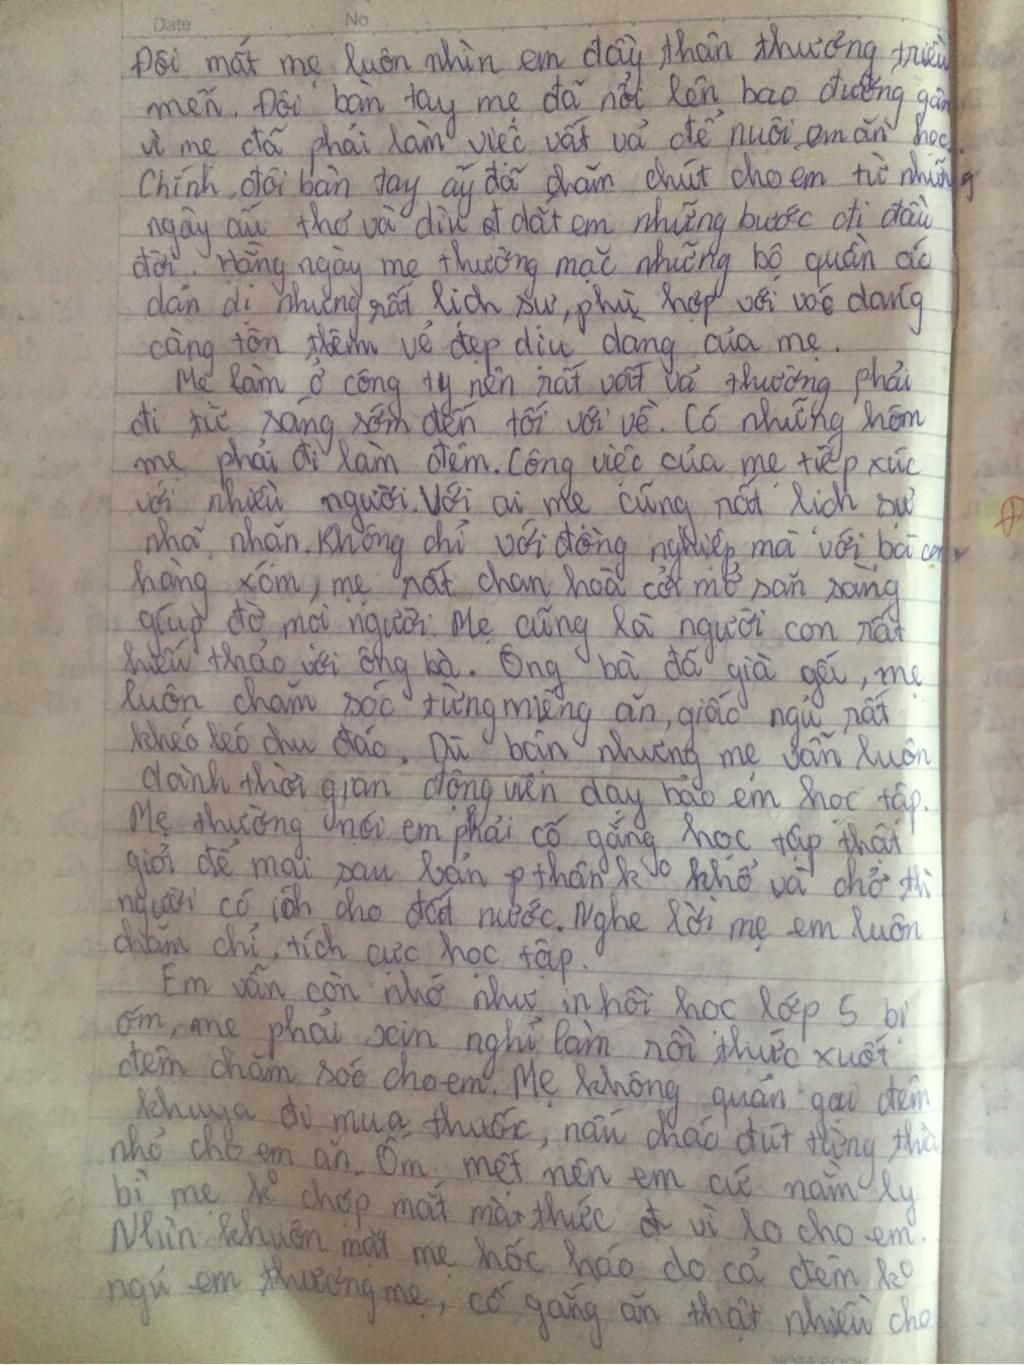 Date No
Đôi mắt mẹ luôn nhìn em đầy thân thương triều
mến. Đôi bàn tay mẹ đã nổi lên bao đường gân
vì mẹ đã phải làm việc vất vả để nuôi em ăn học.
Chính đôi bàn tay ấy đã chăm chút cho em từ những
ngày ấu thơ và dìu dắt em những bước đi đầu
đời. Hằng ngày mẹ thường mặc những bộ quần áo
dản dị nhưng rất lịch sự, phù hợp với vóc dáng
càng tôn thêm vẻ đẹp dịu dàng của mẹ.
Mẹ làm ở công ty nên rất vất vả thường phải
đi từ sáng sớm đến tối với về. Có những hôm
mẹ phải đi làm đêm. Công việc của mẹ tiếp xúc
với nhiều người. Với ai mẹ cũng rất lịch sự
nhã nhặn. Không chỉ với đồng nghiệp mà với bà con
hàng xóm, mẹ rất chan hoà cởi mở sẵn sàng
giúp đỡ mọi người. Mẹ cũng là người con rất
hiếu thảo với ông bà. Ông bà đã già yếu, mẹ
luôn chăm sóc từng miếng ăn, giấc ngủ rất
khéo léo chu đáo. Dù bận nhưng mẹ vẫn luôn
dành thời gian động viên dạy bảo em học tập.
Mẹ thường nói em phải cố gắng học tập thật
giỏi để mai sau bản thân k° khổ và chở thì
người có ích cho đất nước. Nghe lời mẹ em luôn
chăm chỉ, tích cực học tập.
Em vẫn còn nhớ như in hồi học lớp 5 bị
ốm, mẹ phải xin nghỉ làm rồi thức xuốt
đêm chăm sóc cho em. Mẹ không quản gại đêm
khuya đi mua thuốc, nấu cháo đút từng thìa
nhỏ cho em ăn. Ốm mệt nên em cứ nằm ly
bì mẹ k° chợp mắt mà thức vì lo cho em.
Nhìn khuôn mặt mẹ hốc hác do cả đêm k°
ngủ em thương mẹ, cố gắng ăn thật nhiều cho